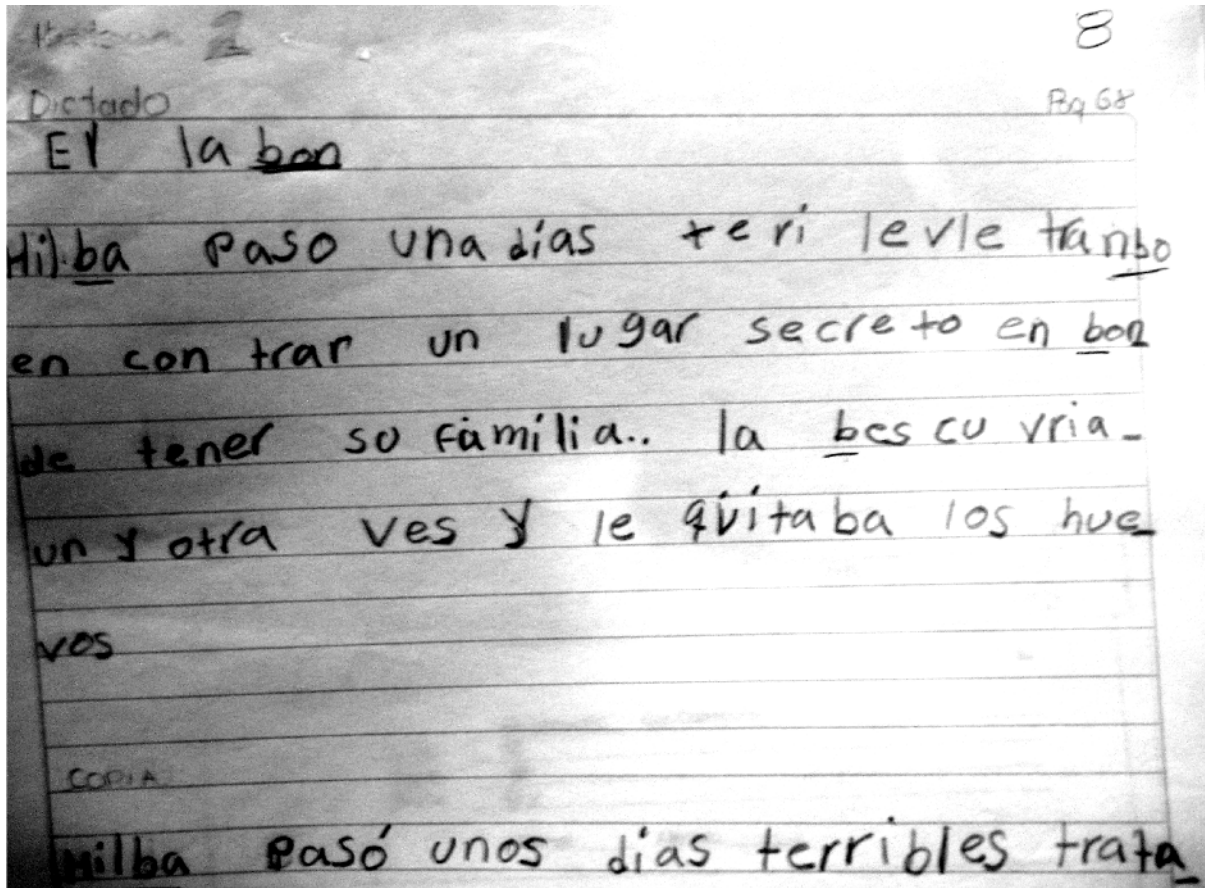 2 8
Dictado Pag 68
El la bon
Hilba paso una días teri levle tranbo
en con trar un lugar secreto en bon
de tener so familia.. la bes cu vria-
un y otra ves y le quitaba los hue
vos
COPIA
Hilba pasó unos días terribles trata